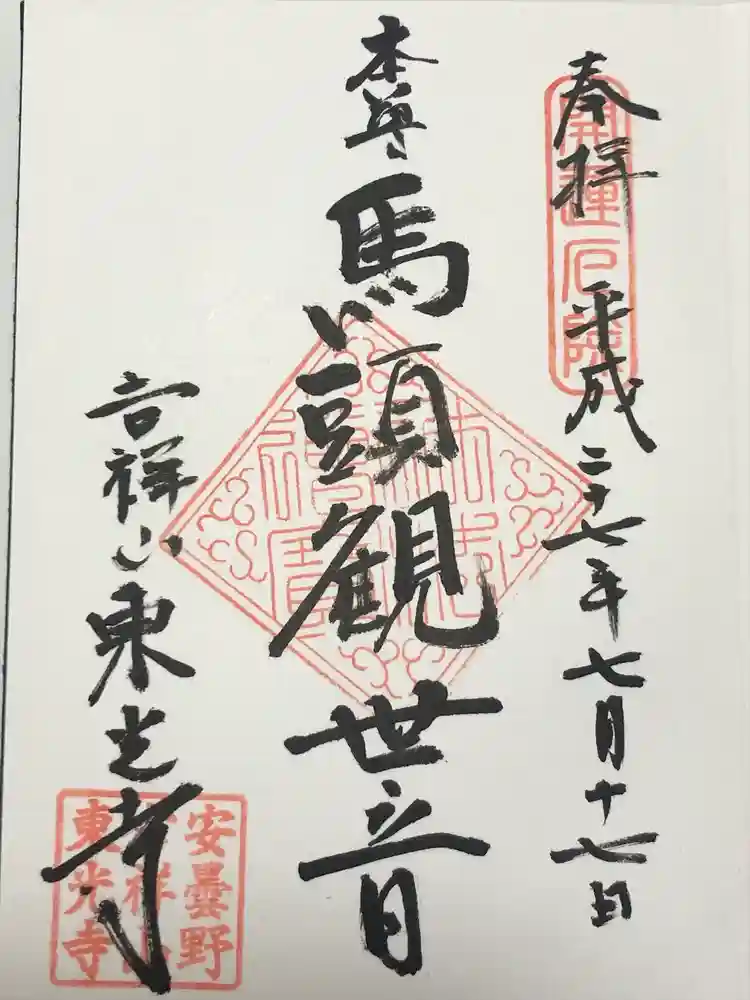 奉拝
平成二十七年七月十七日
開運厄除
本尊
馬頭観世音
吉祥山東光寺
安曇野
吉祥山
東光寺